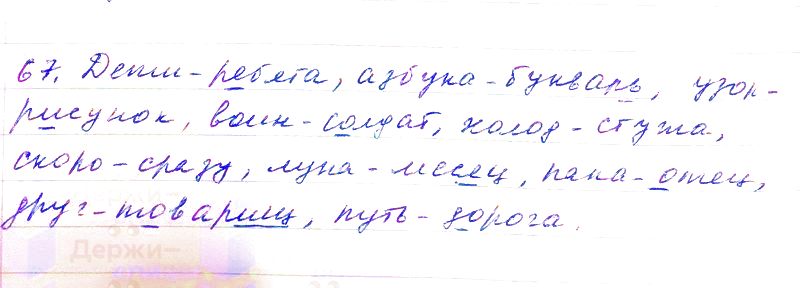 67. Дети - ребята, азбука - букварь, узор -
рисунок, воин - солдат, холод - стужа,
скоро - сразу, луна - месяц, папа - отец,
друг - товарищ, путь - дорога.
Держи-